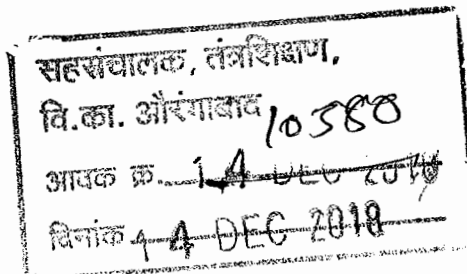 सहसंचालक, तंत्रशिक्षण,
वि.का. औरंगाबाद 10580
आवक क्र. 14 DEC 2018
दिनांक 14 DEC 2018